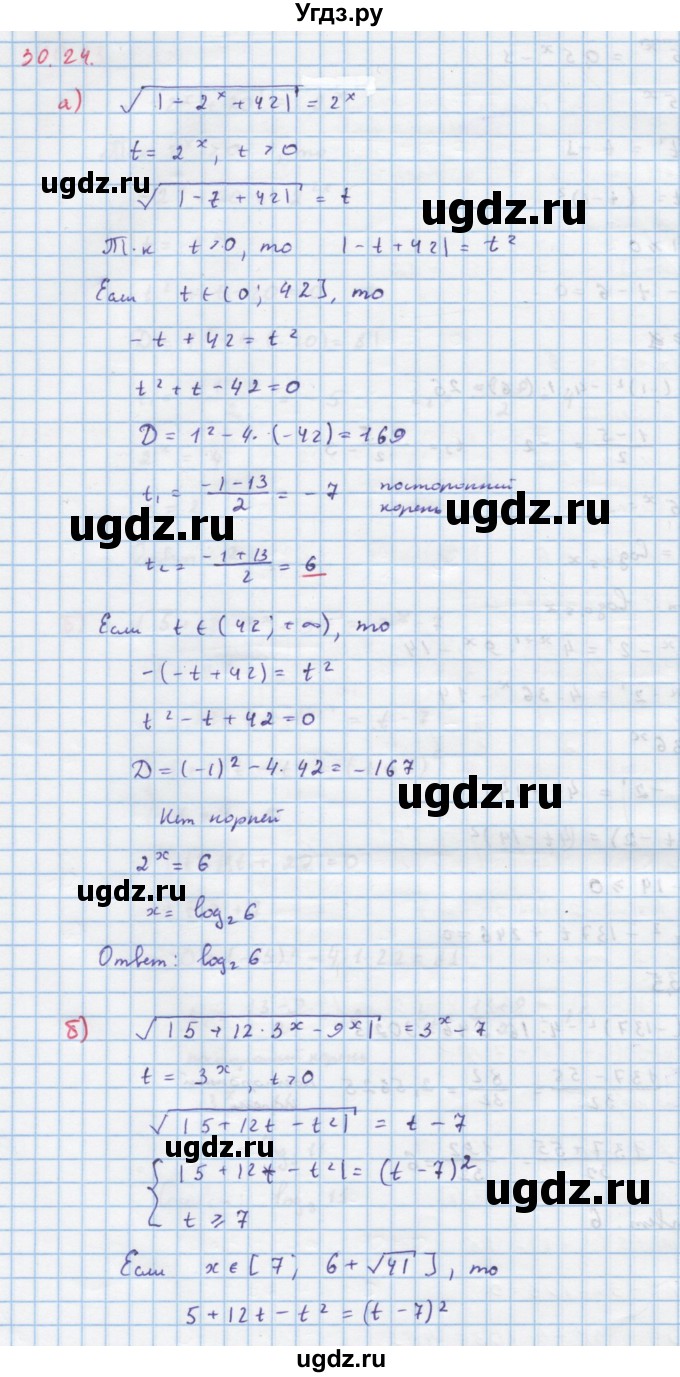 Угдз.ру
30.24.
а) √|-2^x+42| = 2^x
t = 2^x, t > 0
ugdz.ru
√|-t+42| = t
ugdz.ru
Т.к t>0, то |-t+42| = t²
Если t ∈ (0; 42], то
-t+42 = t²
t²+t-42=0
D = 1²-4·(-42) = 169
t₁ = (-1-13)/2 = -7 посторонний корень
ugdz.ru
ugdz.ru
t₂ = (-1+13)/2 = 6
Если t ∈ (42; +∞), то
-(-t+42) = t²
t²-t+42=0
D = (-1)²-4·42 = -167
ugdz.ru
Нет корней
2^x = 6
ugdz.ru
x = log₂6
Ответ: log₂6
б) √|5+12·3^x-9^x| = 3^x-7
t = 3^x, t>0
√|5+12t-t²| = t-7
{ |5+12t-t²| = (t-7)²
t ≥ 7
ugdz.ru
Если x ∈ [7; 6+√41], то
5+12t-t² = (t-7)²
ugdz.ru